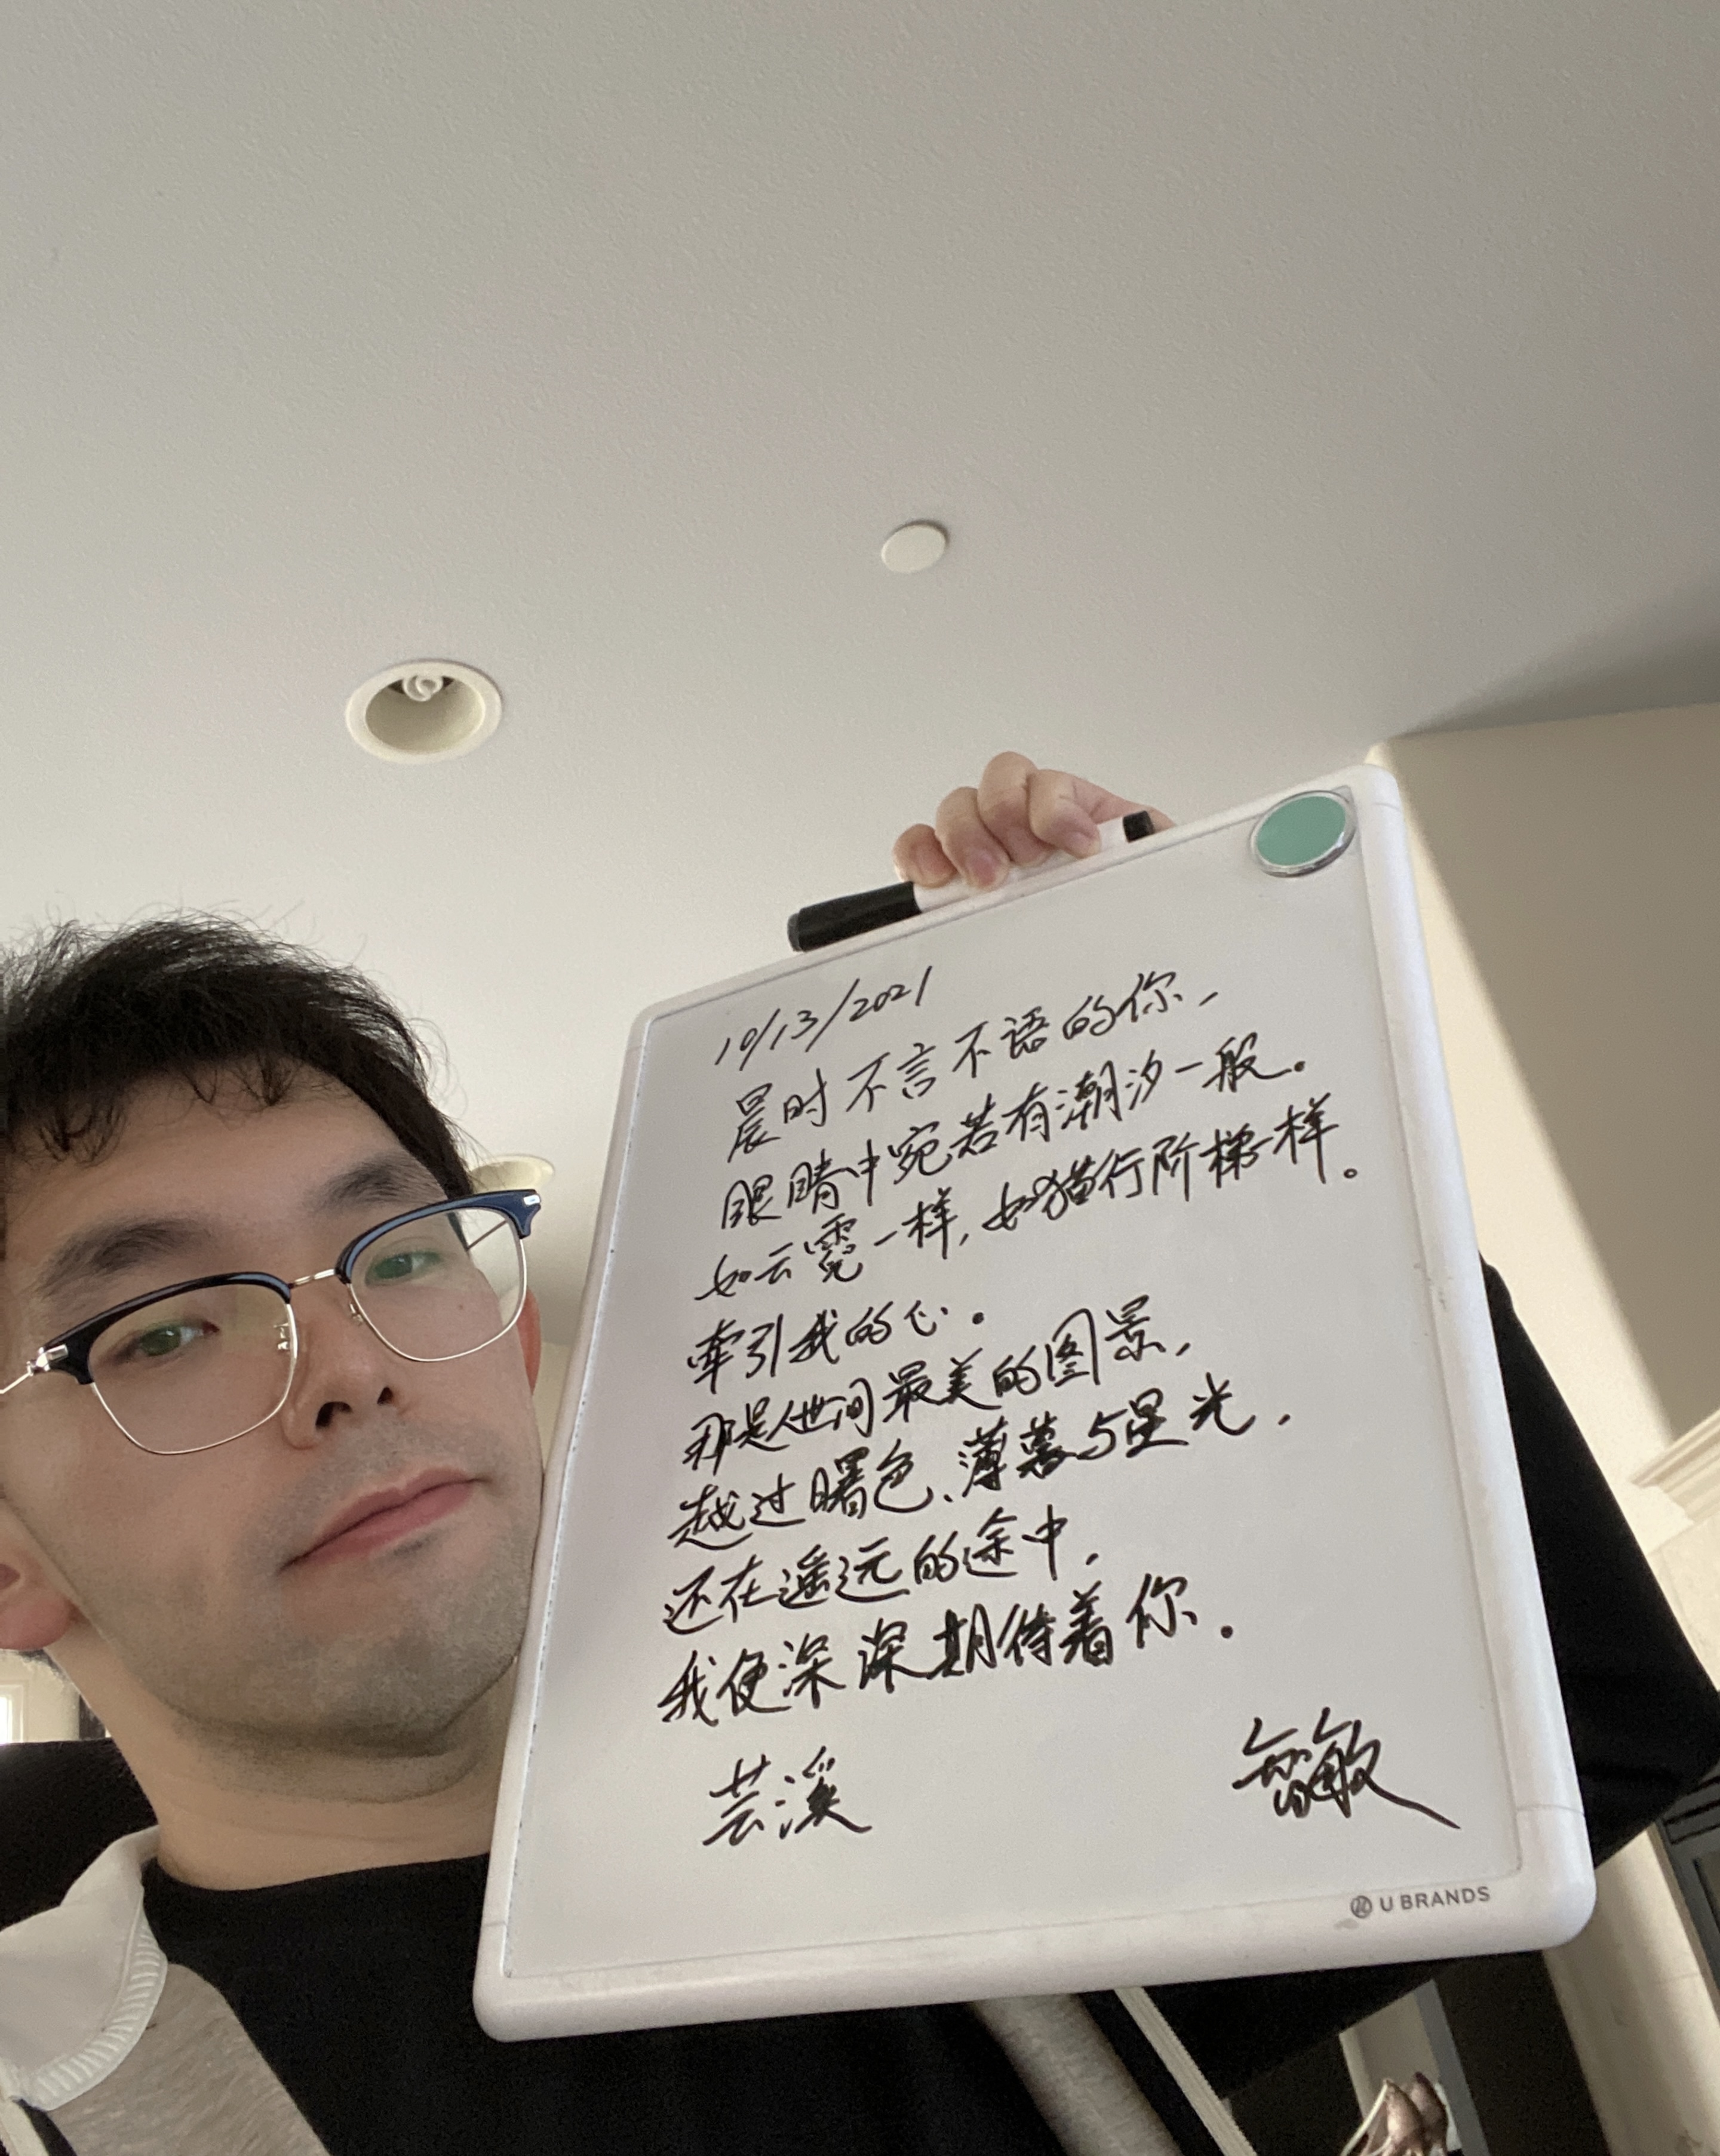 10/13/2021
晨时不言不语的你,
眼睛中宛若有潮汐一般。
如云霓一样,如猫行阶梯一样。
牵引我的心。
那是人世间最美的图景,
越过曙色、薄暮与星光,
还在遥远的途中,
我便深深期待着你。
芸溪
敏
U BRANDS